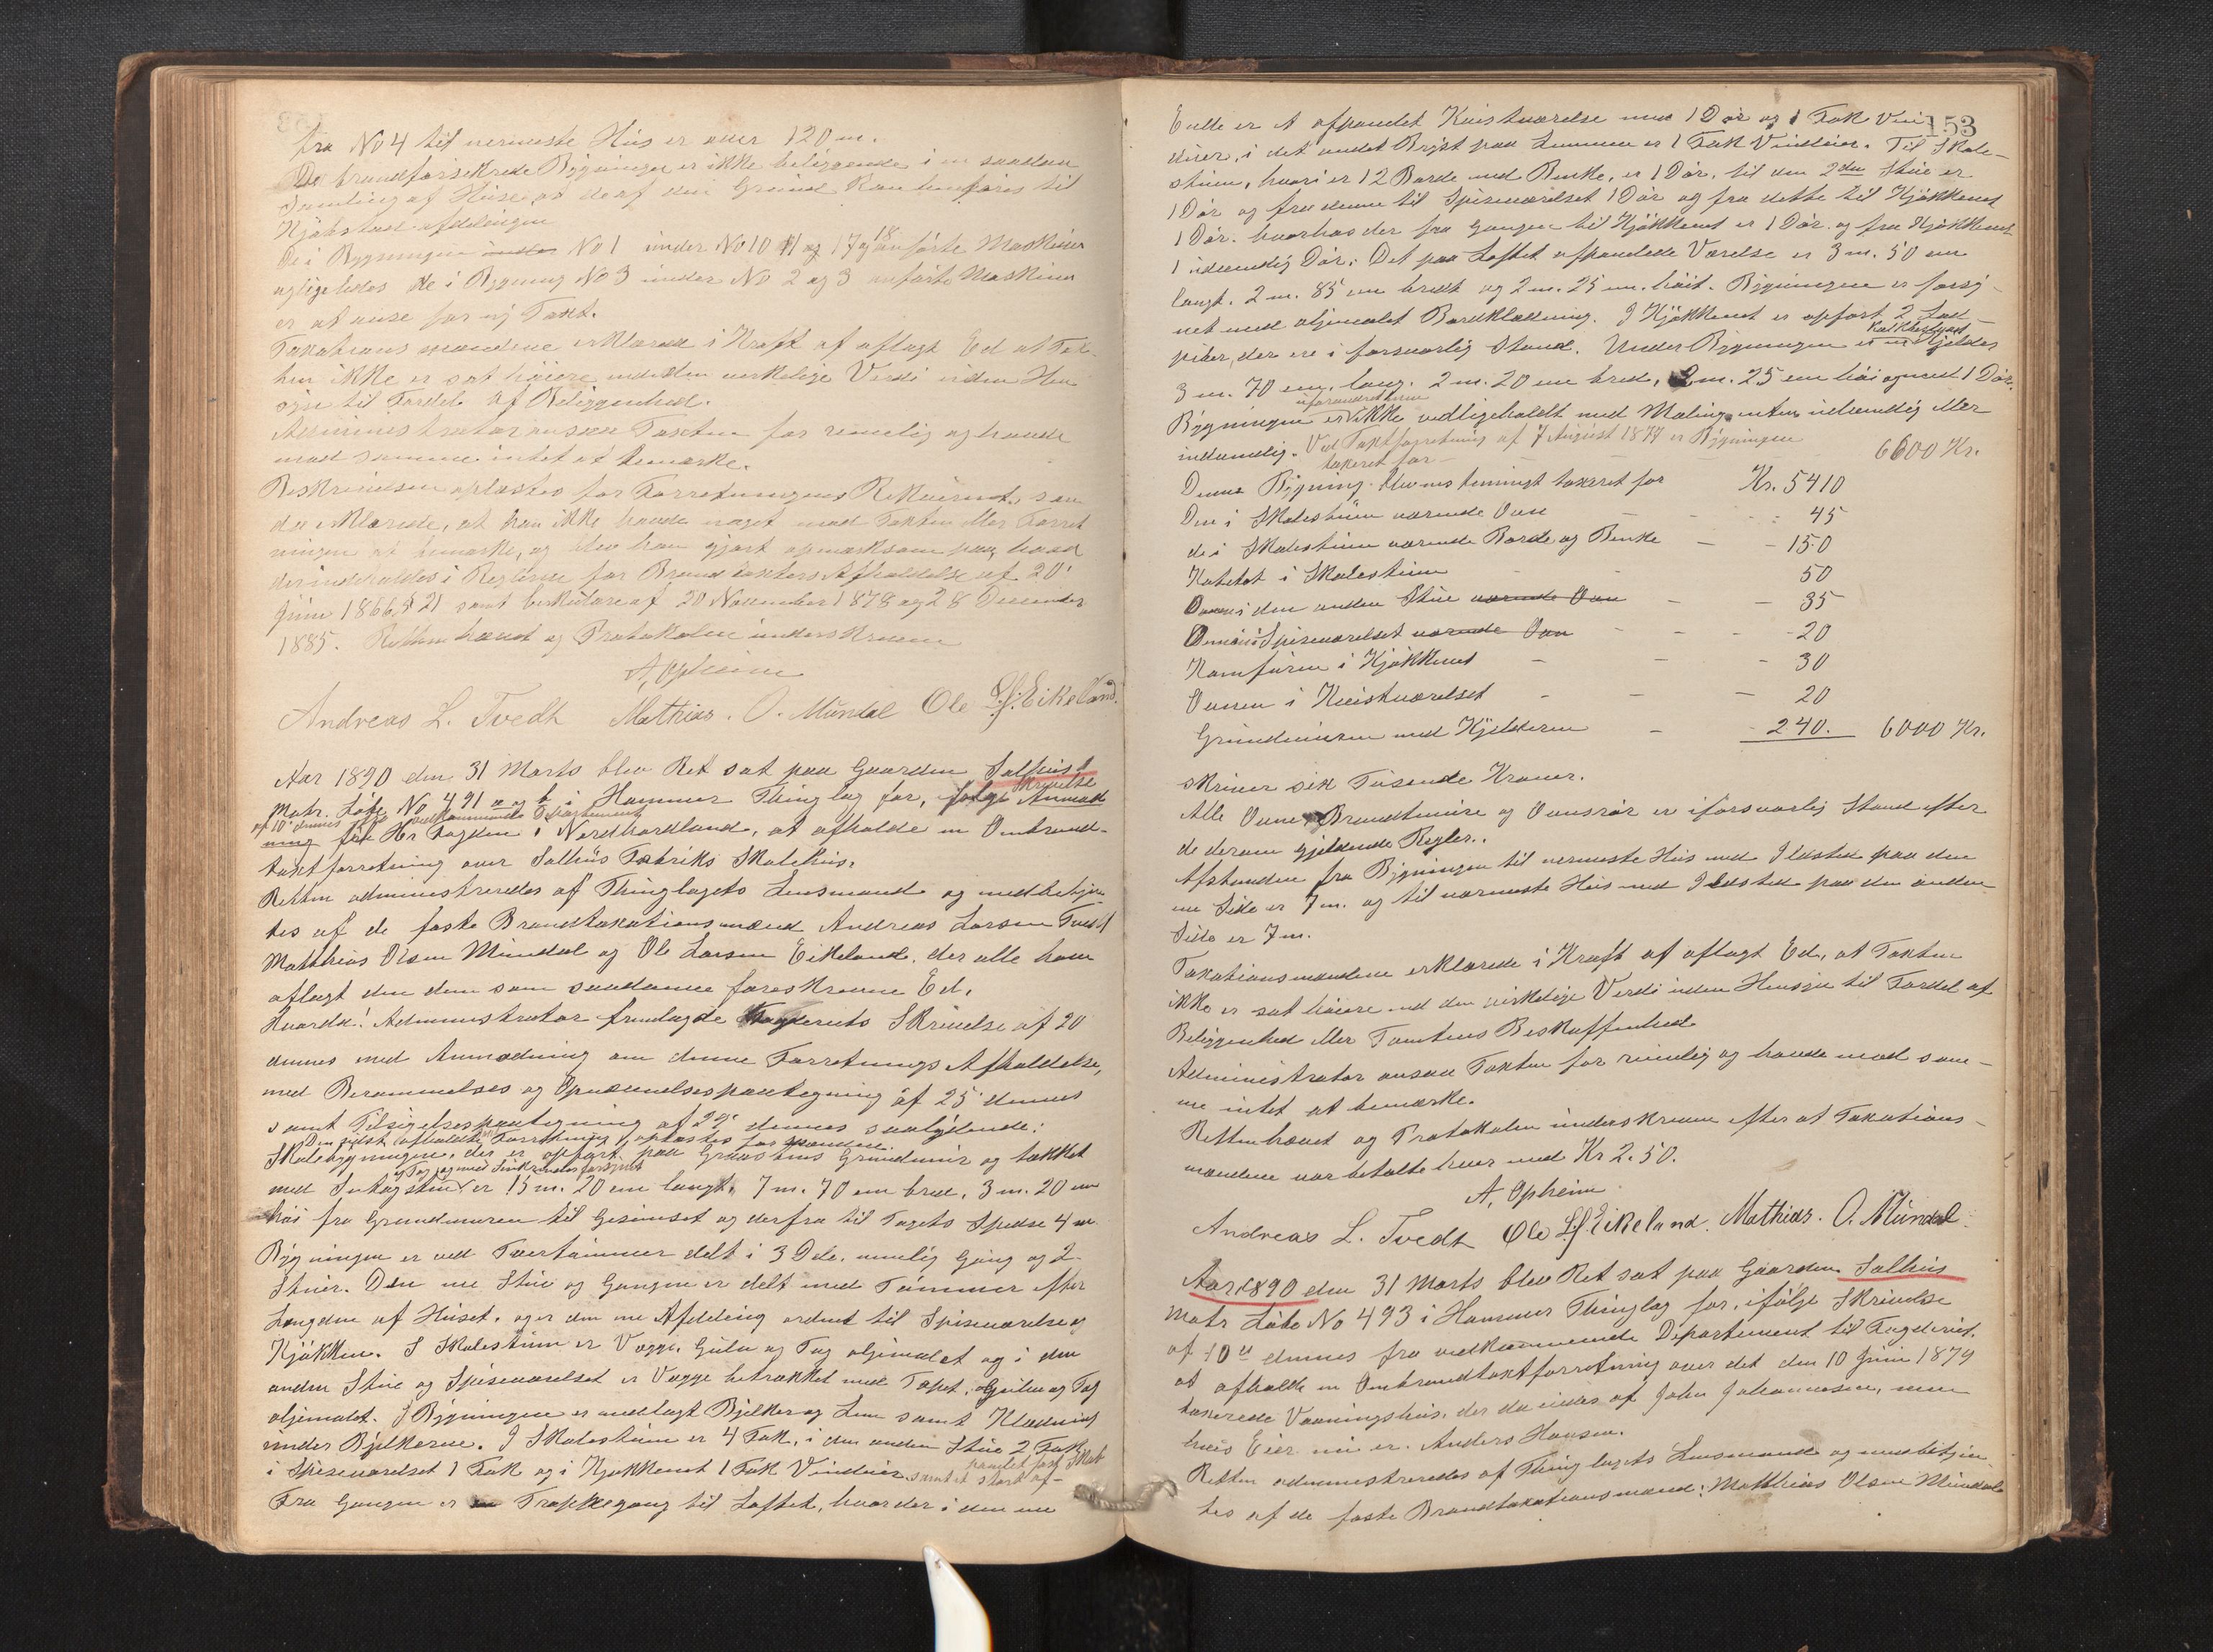 fra No 4 til nermeste Hus er over 120 m.
De brandforsikrede Bygninger er ikke beliggende i en saadan
Samling af Huse at de af den Grund kan henføres til
Kjøbstadafdelingen
De i Bygningen under No 1 under No 10 11 og 17 og 18 anførte Maskiner
ligeledes de i Bygning No 3 under No 2 og 3 anførte Maskiner
er at anse for ny Taxt.
Taxationsmændene erklærede i Kraft af aflagt Ed at Tax-
ten ikke er sat høiere end den verkelige Verdi uden Hen
syn til Fordel af Beliggenhed.
Administrator ansaa Taxten for rimelig og havde
mod samme intet at bemærke.
Beskrivelsen oplæstes for Forretningens Rekvirent, som
da erklærede, at han ikke havde noget mod Taxten eller Forret
ningen at bemærke, og blev han gjort opmærksom paa, hvad
der indeholdes i Reglerne for Brandtaxters Afholdelse af 20'
Juni 1866 § 21 samt Cirkulære af 20 November 1878 og 28 December
1885. Retten hævet og Protokolen underskreven
A, Opheim
Andreas L. Tvedt Mathias. O. Mündal Ole L.s. Eikeland.
Aar 1890 den 31 Marts blev Ret sat paa Gaarden Salhus
Matr. Løbe No 491 a og b i Hammer Thinglag for, ifølge Skrivelse Anmod
af 10' dennes fra vedkommende Departement
ning fra Hr Fogden i Nordhordland, at afholde en Ombrand-
taxtforretning over Salhus Fabriks Skolehus.
Retten administreredes af Thinglagets Lensmand og medbetjen-
tes af de faste Brandtaxationsmænd Andreas Larsen Tvedt
Matthias Olsen Mündal og Ole Larsen Eikeland, der alle have
aflagt den dem som saadanne foreskrevne Ed.
Hvorda! Administrator fremlagde Fogderiets Skrivelse af 20
dennes med Anmodning om denne Forretnings Afholdelse,
med Berammelses og Opnævnelsespaategning af 25' dennes
samt Tilsigelsespaategning af 29' dennes saalydende:
Den sidst afholdte Forretning oplæstes for Mændene.
Skolebygningen, der er opført paa Graastens Grundmur og tækket
med Indtagsten er 15 m. 20 cm langt, 7 m. 70 cm bred, 3 m. 20 cm
høi fra Grundmuren til Gesimset og derfra til Tagets Spidse 4 m.
Bygningen er ved Tvertømmer delt i 3 Dele, nemlig Gang og 2
Stuer. Den ene Stue og Gangen er delt med Tømmer efter
Længden af Huset, og er den ene Afdeling ordnet til Spiseværelse og
Kjøkken. I Skolestuen er Vægge, Gulv og Tag oljemalet og i den
anden Stue og Spiseværelset er Vægge betrækket med Tapet, Gulv og Tag
oljemalet. I Bygningen er anbragt Bjelker og Lem samt Klædning
under Bjelkerne. I Skolestuen er 4 Fak, i den anden Stue 2 Fak
i Spiseværelset 1 Fak og i Kjøkkenet 1 Fak Vinduer samt et stort af-
panelet fast Skab
Fra Gangen er en Trappegang til Loftet, hvor der i den ene
153
Ende er et afpanelet Kvistværelse med 1 Dør og 1 Fak Vin
duer, i det andet Bryst paa Lemmen er 1 Fak Vinduer. Til Skole-
stuen, hvori er 12 Borde med Benke, er 1 Dør, til den 2den Stue er
1 Dør og fra denne til Spiseværelset 1 Dør og fra dette til Kjøkkenet
1 Dør. hvorhos der fra Gangen til Kjøkkenet er 1 Dør og fra Kjøkkenet
1 udvendig Dør. Det paa Loftet afpanelede Værelse er 3 m. 50 cm
langt. 2 m. 85 cm bredt og 2 m. 25 cm. høit. Bygningen er forsy-
net med oljemalet Bordklædning. I Kjøkkenet er opført 2 Lad-
piber, der ere i forsvarlig Stand. Under Bygningen er en Kjelder
3 m. 70 cm. lang. 2 m. 20 cm bred, 2 m. 25 cm høi og med 1 Dør.
uforandret men
Bygningen er ikke vedligeholdt med Maling enten udvendig eller
indvendig. Ved Taxtforretning af 7 August 1877 er Bygningen
taxeret for — 6600 Kr.
Denne Bygning blev enstemmigt taxeret for Kr. 5410
Den i Skolestuen værende Ovn - - 45
de i Skolestuen værende Borde og Benke - - 150
Katetet i Skolestuen 50
Ovnen i den anden Stue værende Ovn - - 35
Ovnen i Spiseværelset værende Ovn - - 20
Komfuren i Kjøkkenet - - - 30
Ovnen i Kvistværelset - - - 20
Grundmuren med Kjelderen - 240. 6000 Kr.
skriver sex Tusende Kroner.
Alle Ovne, Brandmure og Ovnsrør er i forsvarlig Stand efter
de derom gjeldende Regler.
Afstanden fra Bygningen til nermeste Hus med Ildsted paa den
ene Side er 7 m. og til nærmeste Hus med Ildsted paa den anden
Side er 7 m.
Taxationsmændene erklærede i Kraft af aflagt Ed, at Taxten
ikke er sat høiere end den virkelige Verdi uden Hensyn til Fordel af
Beliggenhed eller Tomtens Beskaffenhed.
Administrator ansaa Taxten for rimelig og havde mod sam-
me intet at bemærke.
Retten hævet og Protokolen underskreven efter at Taxations-
mændene var betalte hver med Kr 2.50.
A, Opheim
Andreas L. Tvedt Ole L.s. Eikeland. Mathias. O. Mündal.
Aar 1890 den 31 Marts blev Ret sat paa Gaarden Salhus
Matr Løbe No 493 i Hammer Thinglag for, ifølge Skrivelse
af 10de dennes fra vedkommende Departement til Fogderiet,
at afholde en Ombrandtaxtforretning over det den 10 Juni 1879
taxerede Vaaningshus, der da eiedes af John Johannesen, men
hvis Eier nu er Anders Hansen.
Retten administreredes af Thinglagets Lensmand og medbetjen-
tes af de faste Brandtaxationsmænd: Matthias Olsen Mündal